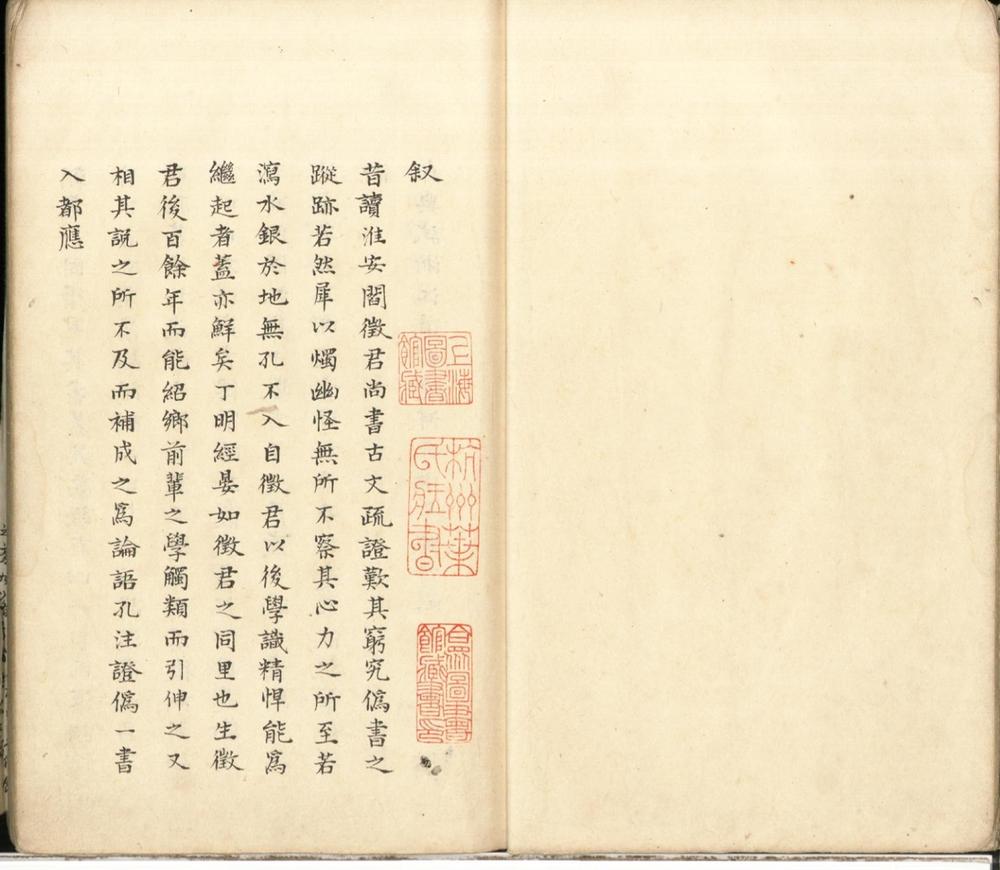 叙
昔讀淮安閻徵君尚書古文疏證歎其窮究僞書之
蹤跡若然犀以燭幽怪無所不察其心力之所至若
瀉水銀於地無孔不入自徵君以後學識精悍能爲
繼起者蓋亦鮮矣丁明經晏如徵君之同里也生徵
君後百餘年而能紹鄉前輩之學觸類而引伸之又
相其説之所不及而補成之爲論語孔注證僞一書
入都應
上海圖書館藏
杭州葉氏藏書
合衆圖書館藏書印